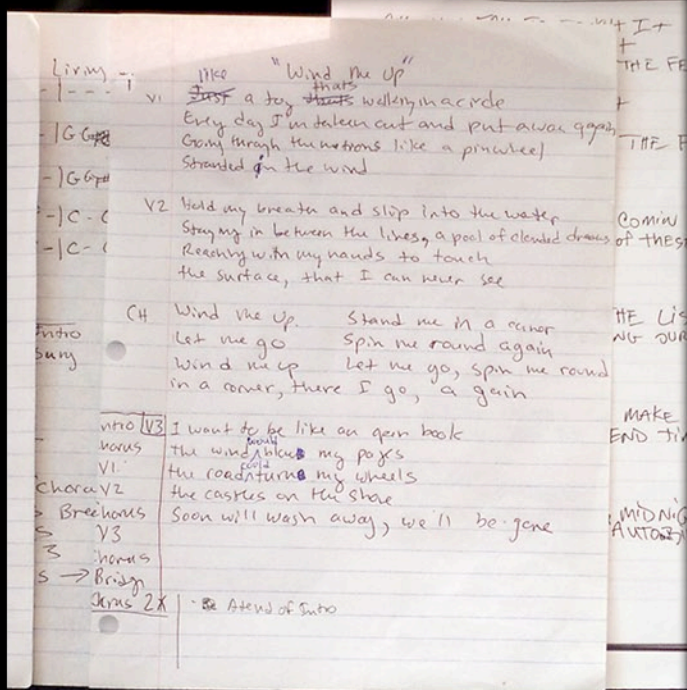 "Wind Me Up"
like thats
V1 Just a toy thats walking in a circle
Every day I'm taken out and put away again
Going through the motions like a pinwheel
Stranded in the wind
V2 Hold my breath and slip into the water
Staying in between the lines, a pool of clouded dreams
Reaching with my hands to touch
the surface, that I can never see
CH Wind me up. Stand me in a corner
Let me go Spin me round again
Wind me up Let me go, spin me round
in a corner, there I go, again
V3 I want to be like an open book
would
the wind blows my pages
could
the road turns my wheels
the castles on the shore
Soon will wash away, we'll be gone
At end of Intro
Living
-|G
-|G
-|C-
-|C-
Intro
ntro
horus
V1
V2
horus
V3
horus
Bridge
Chorus 2X
Chora
Bre
S
3
S →
I+
+
THE FE
THE F
COMIN
of thes
HE LIS
NG OUR
MAKE
END TI
MIDNIG
AUTOBI